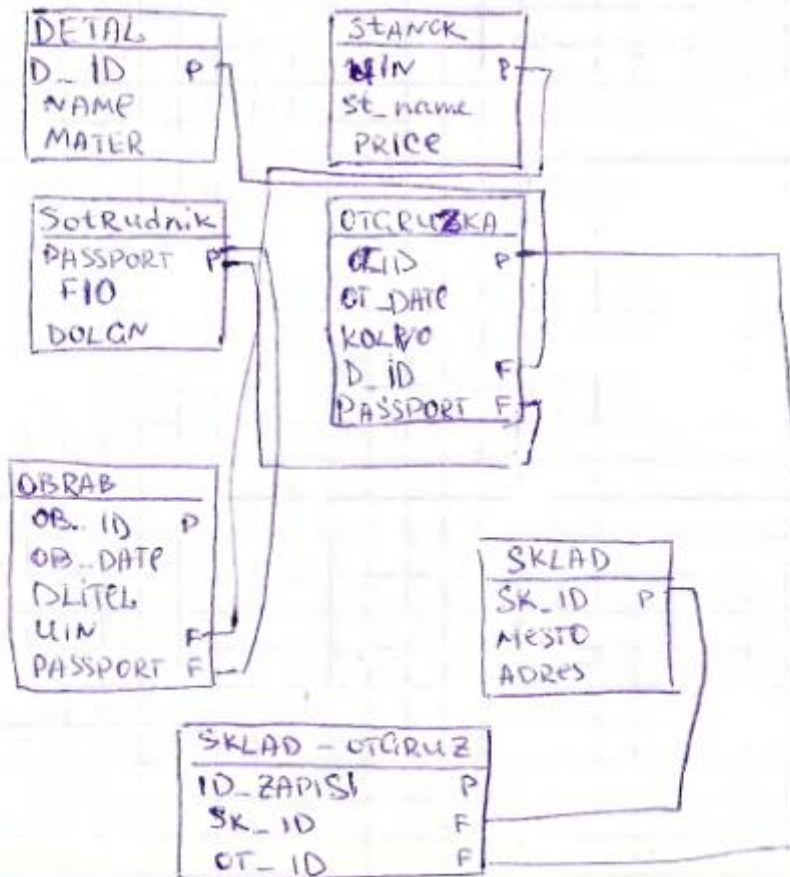 DETAL
D_ID P
NAMe
MATER
StANCK
UIN P
St_name
PRICe
SotRudnik
PASSPORT P
FIO
DOLGN
OTGRUZKA
OT_ID P
OT_DATe
KOLRVO
D_ID F
PASSPORT F
OBRAB
OB_ID P
OB_DATe
DLiTeL
UIN F
PASSPORT F
SKLAD
SK_ID P
MeSTO
ADRes
SKLAD - OTGRUZ
ID_ZAPISI P
SK_ID F
OT_ID F